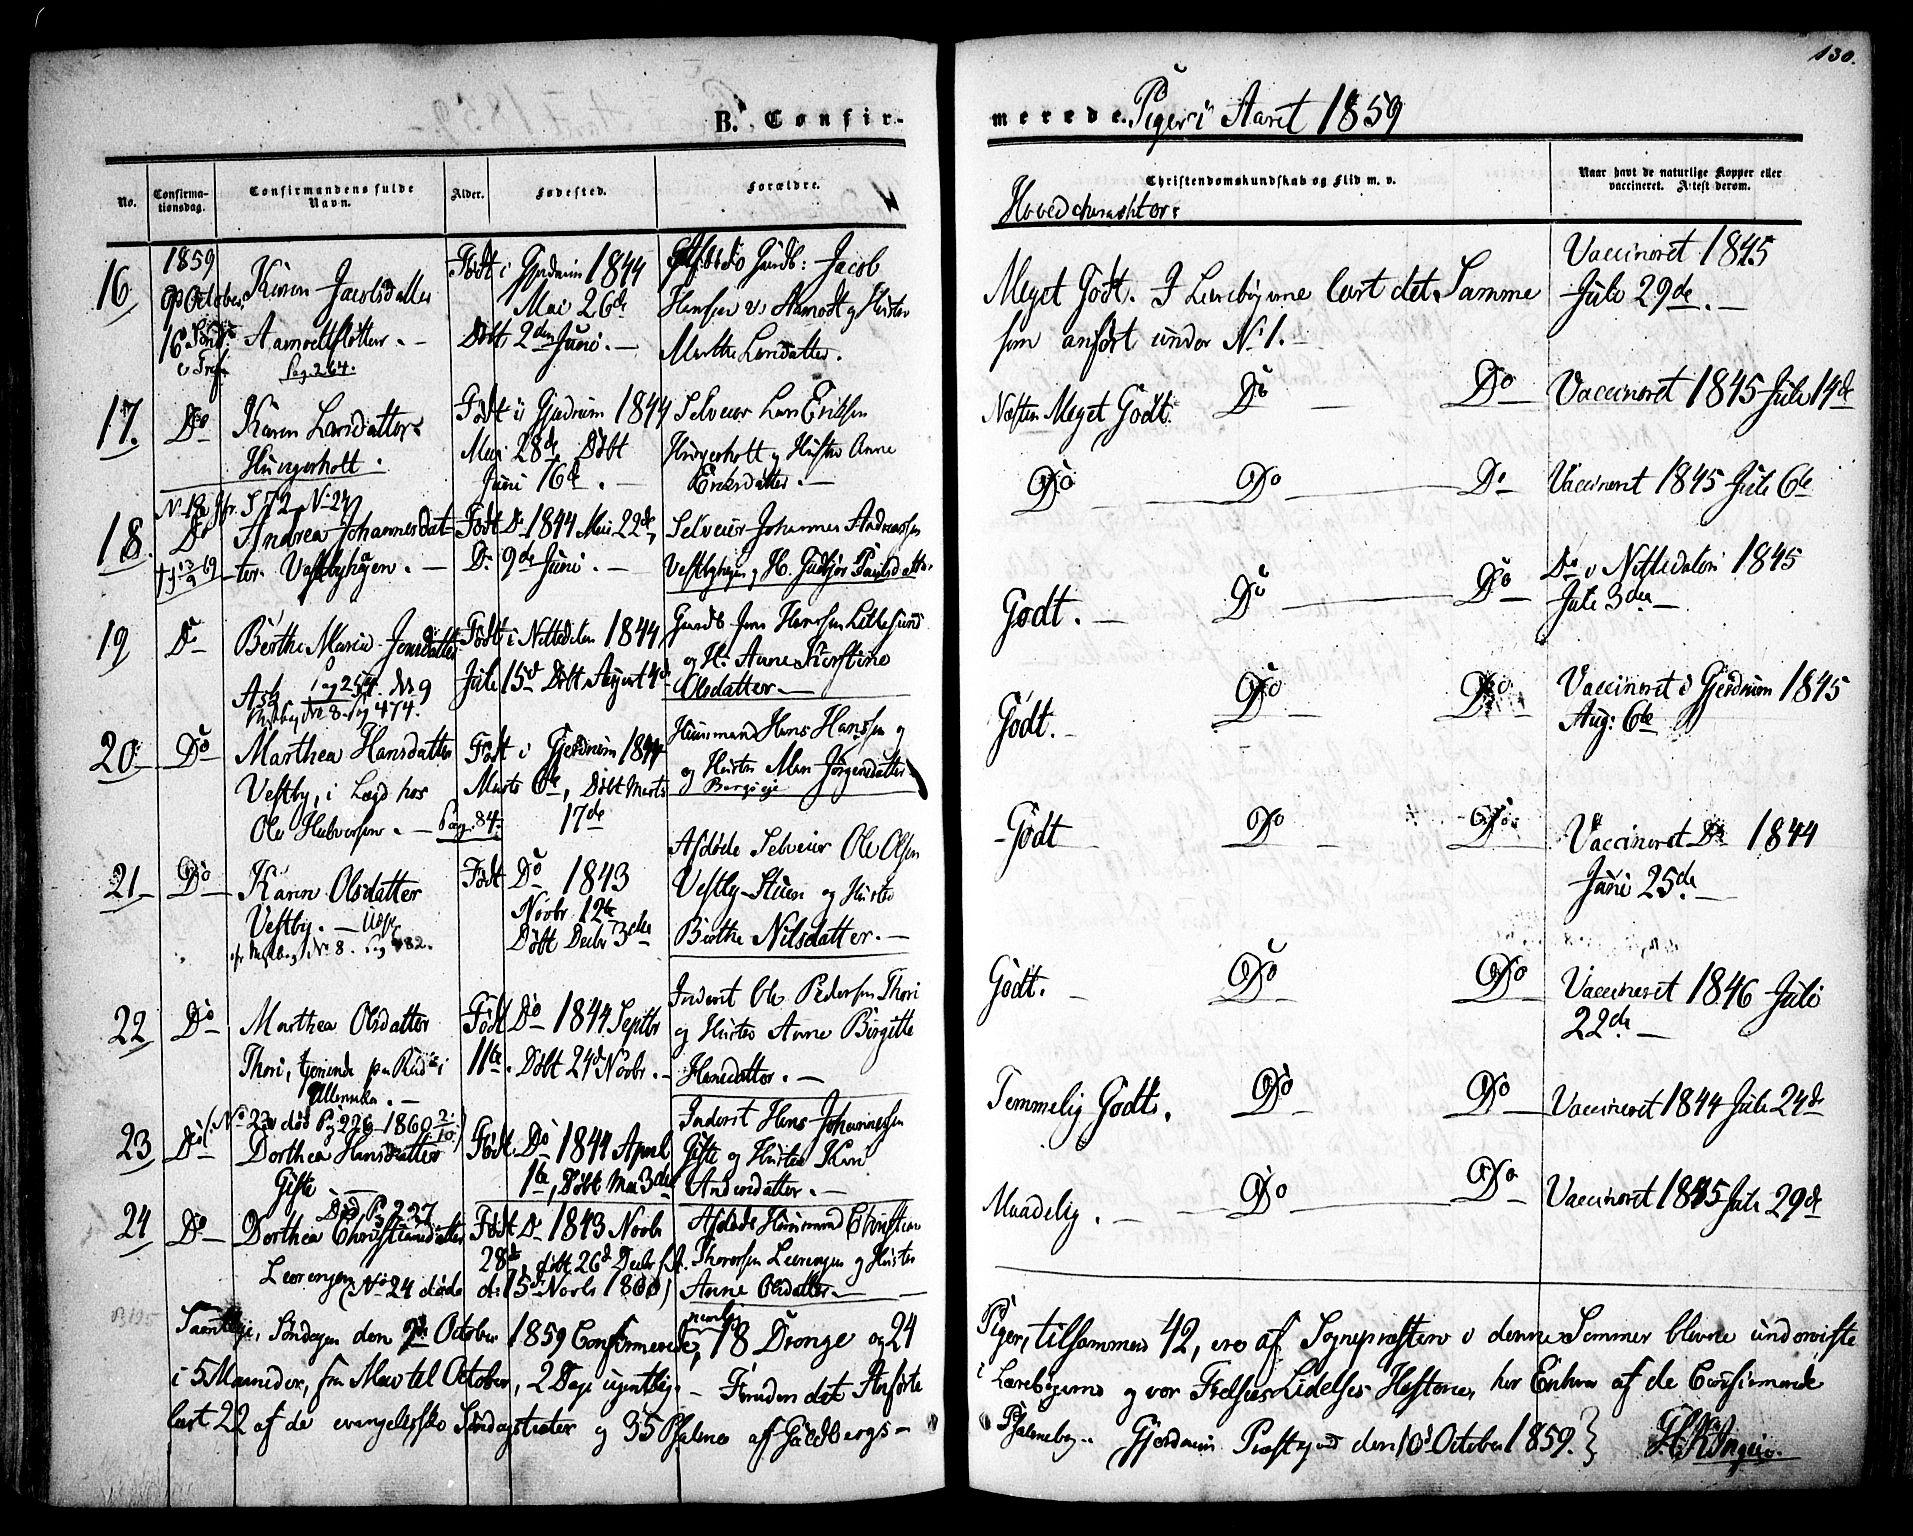 130.
B. Confir-
merede. Piger i Aaret 1859
No.
Confirma-
tionsdag.
Confirmandens fulde
Navn.
Alder.
Fødested.
Forældre.
Christendomskundskab og Flid m. v.
Hovedcharakter:
Naar havt de naturlige Kopper eller
vaccineret. Attest derom.
16
1859
9de October
16 Sønd:
e Tref.
Karen Jacobsdatter
Aamodtslotten. —
Pag. 264.
Født i Gjerdrum 1844
Mai 26de
Døbt 2den Juni. —
Gaardb: Jacob
Hansen Aamodt og Hustru
Marthe Larsdatter.
Meget Godt. I Lærebøgerne læst det Samme
som anført under No 1. —
Vaccineret 1845
Juli 29de. —
17.
Do
Karen Larsdatter
Hungerholt.
Født i Gjerdrum 1844
Mai 28de Døbt
Juni 16de. —
Selveier Lars Eriksen
Hungerholt og Hustru Anne
Eriksdatter. —
Næsten Meget Godt. Do — Do
Vaccineret 1845 Juli 14de
18.
Do
Andrea Johannesdat-
ter Vestbyhagen. —
Født Do 1844 Mai 22de,
Do 9de Juni. —
Selveier Johannes Andreassen
Vestbyhagen og H. Paulsdatter.
Do — Do — Do
Vaccineret 1845 Juli 6te
19
Do
Berthe Maria Jensdatter
Ask Pag 254. No 9
No 8. Pag 474.
Født i Nittedalen 1844
Juli 15de Døbt August 4de
Gaardb. Jens Hansen Lillesund
og H: Anne Kirstine
Olsdatter. —
Godt. — Do — Do
Do i Nittedalen 1845
Juli 3die —
20
Do
Marthea Hansdatter
Vestby, i Lægd hos
Ole Halvorsen. — Pag. 84.
Født i Gjerdrum 1844
Marts 6te, Døbt Marts
17de
Huusmand Hans Hanssen
og Hustru Mari Jørgensdatter
Godt. — Do — Do
Vaccineret i Gjerdrum 1845
Aug: 6te
21
Do
Karen Olsdatter
Vestby. —
No 8. Pag 482.
Født Do 1843
Novbr 12te
Døbt Decbr 3die
Afdøde Selveier Ole Olsen
Vestby-Stuen og Hustru
Berthe Nilsdatter. —
Godt Do — Do
Vaccineret Do 1844
Juni 25de —
22
Do
Marthea Olsdatter
Thori, tjenende paa Ruud i
Ullensaker. —
Født Do 1844 Septbr
11te. Døbt 24de Novbr. —
Inderst Ole Pedersen Thori
og Hustru Anne Birgitte
Hansdatter. —
Godt. — Do — Do
Vaccineret 1846 Juli
22de —
23
Do
(No 23 død Pag 226 1860 2/10)
Dorthea Hansdatter
Giste
Født Do 1844 April
1te, Døbt Mai 3die
Inderst Hans Johannessen
Giste og Hustru Kari
Andersdatter. —
Temmelig Godt. Do — Do
Vaccineret 1844 Juli 24de
24
Do
Død Pag 227
Dorthea Christiansdatter
Leerengen (No 24 døde
Født Do 1843 Novbr
28de, døbt 26de Decbr s. A.
d: 15de Novbr 1860)
Afdøde Huusmand Christian
Thoresen Leerengen og Hustru
Anne Olsdatter. —
Maadelig. — Do — Do
Vaccineret 1845 Juli 29de
Samtlige, Søndagen den 9de October 1859 Confirmerede, nemlig 18 Drenge og 24
i 5 Maaneder, fra Mai til October, 2 Dage ugentlig. — Foruden det Anførte
lært 22 af de evangeliske Søndagstexter og 35 Psalmer af Guldbergs —
Piger, tilsammen 42, ere af Sognepræsten i denne Sommer blevne underviste
i Lærebøgerne og vor Frelsers Lidelses Historie, har Enhver af de Confirmerede
Psalmebog. Gjerdrum Præstegaard den 10de October 1859.